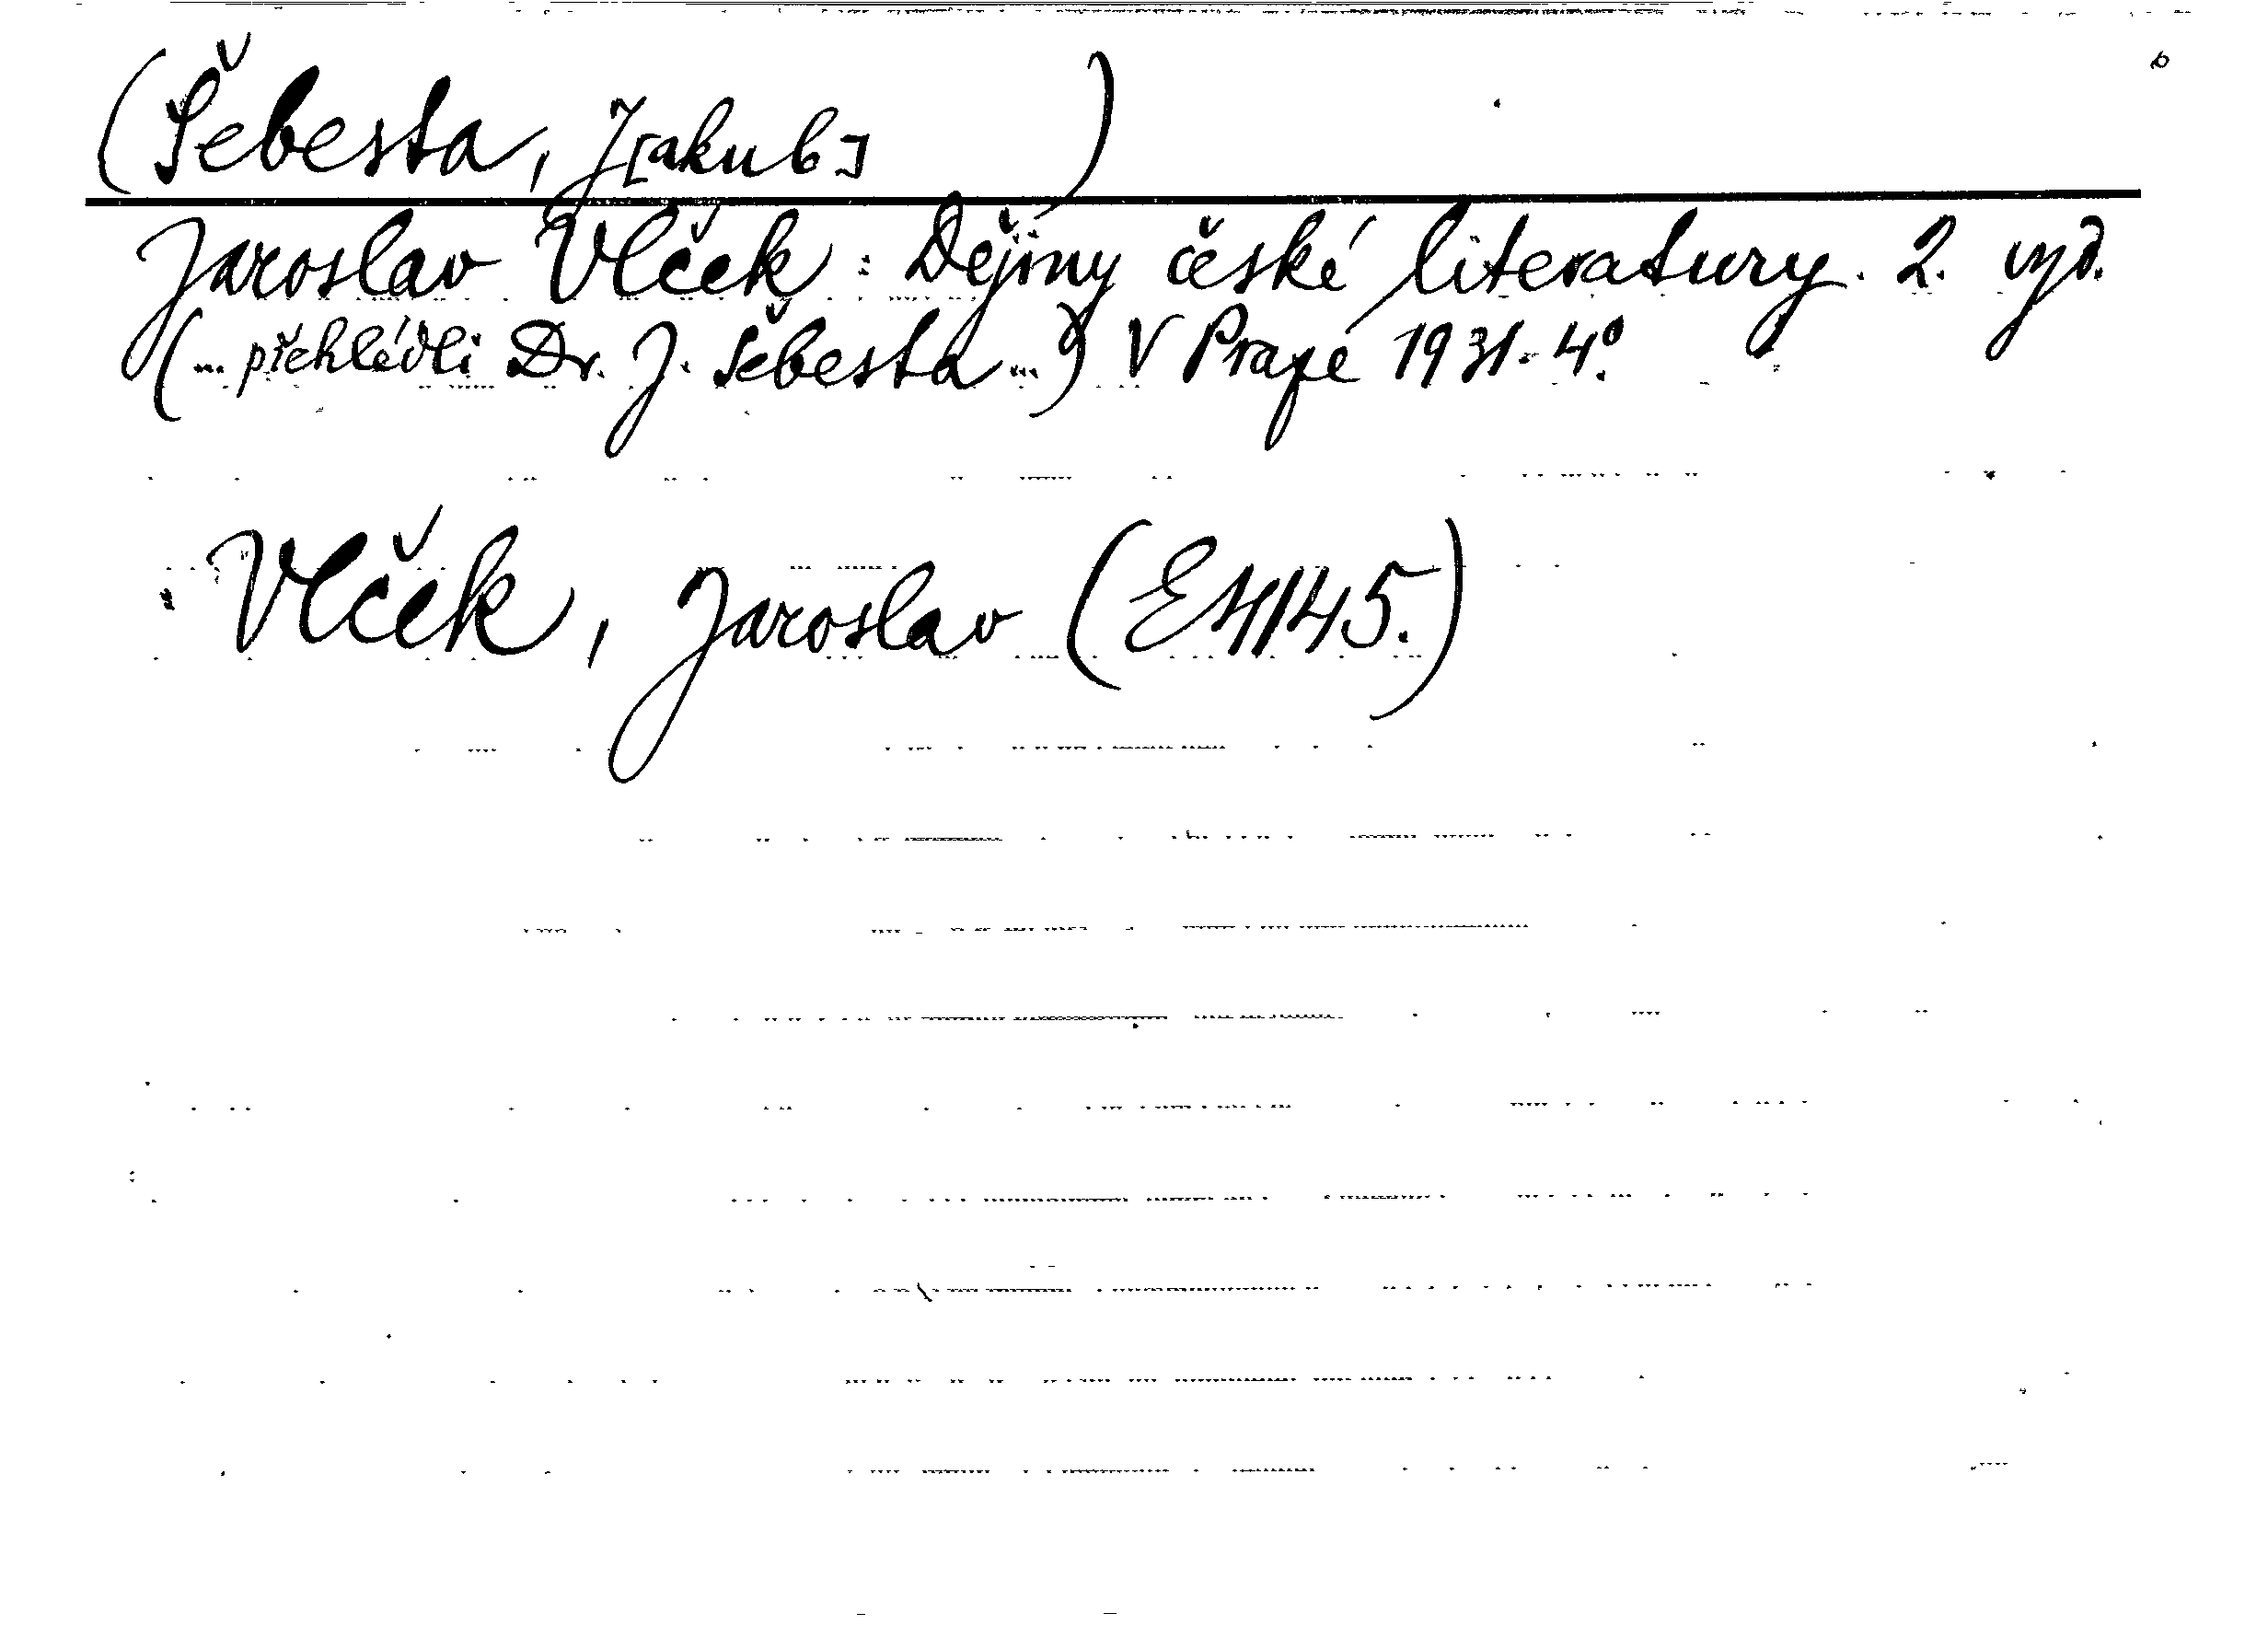 (Šebesta, J[akub] )
Jaroslav Vlček: Dějiny české literatury. 2. vyd.
(... přehlédli Dr. J. Šebesta ...) V Praze 1931. 4°.
Vlček, Jaroslav (E4145.)